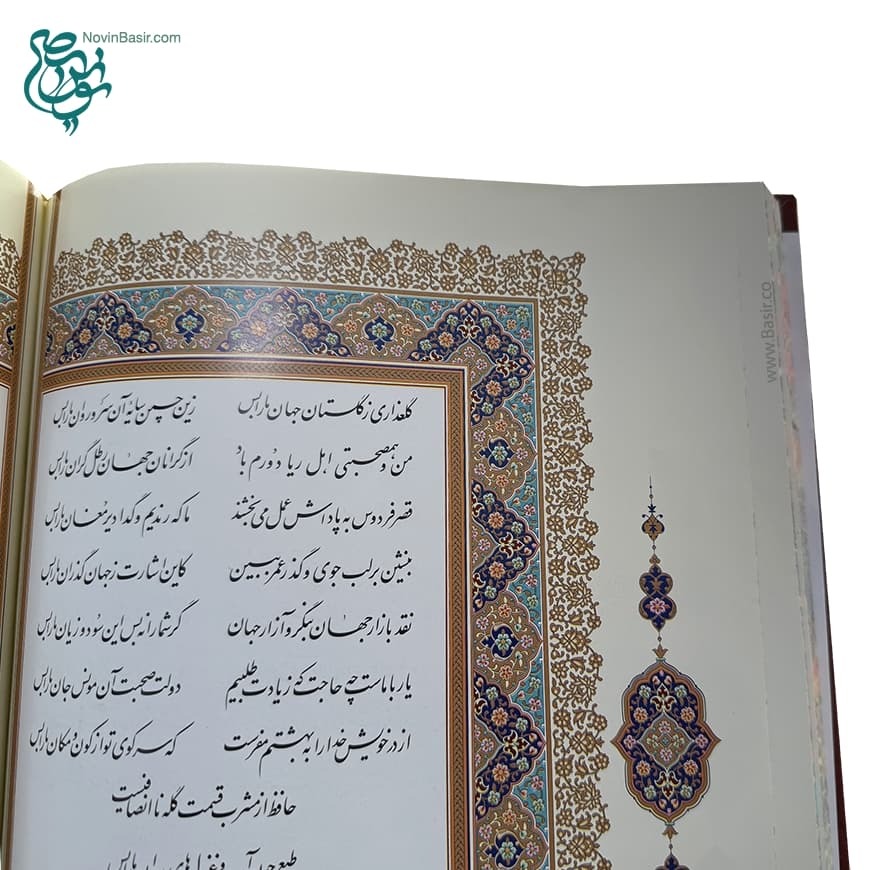 NovinBasir.com
نوین بصیر
www.Basir.co
گلعذاری ز گلستان جهان ما را بس زین چمن سایهٔ آن سرو روان ما را بس
من و همصحبتی اهل ریا دورم باد از گرانان جهان رطل گران ما را بس
قصر فردوس به پاداش عمل می‌بخشند ما که رندیم و گدا دیر مغان ما را بس
بنشین بر لب جوی و گذر عمر ببین کاین اشارت ز جهان گذران ما را بس
نقد بازار جهان بنگر و آزار جهان گر شما را نه بس این سود و زیان ما را بس
یار با ماست چه حاجت که زیادت طلبیم دولت صحبت آن مونس جان ما را بس
از در خویش خدا را به بهشتم مفرست که سر کوی تو از کون و مکان ما را بس
حافظ از مشرب قسمت گله ناانصافیست